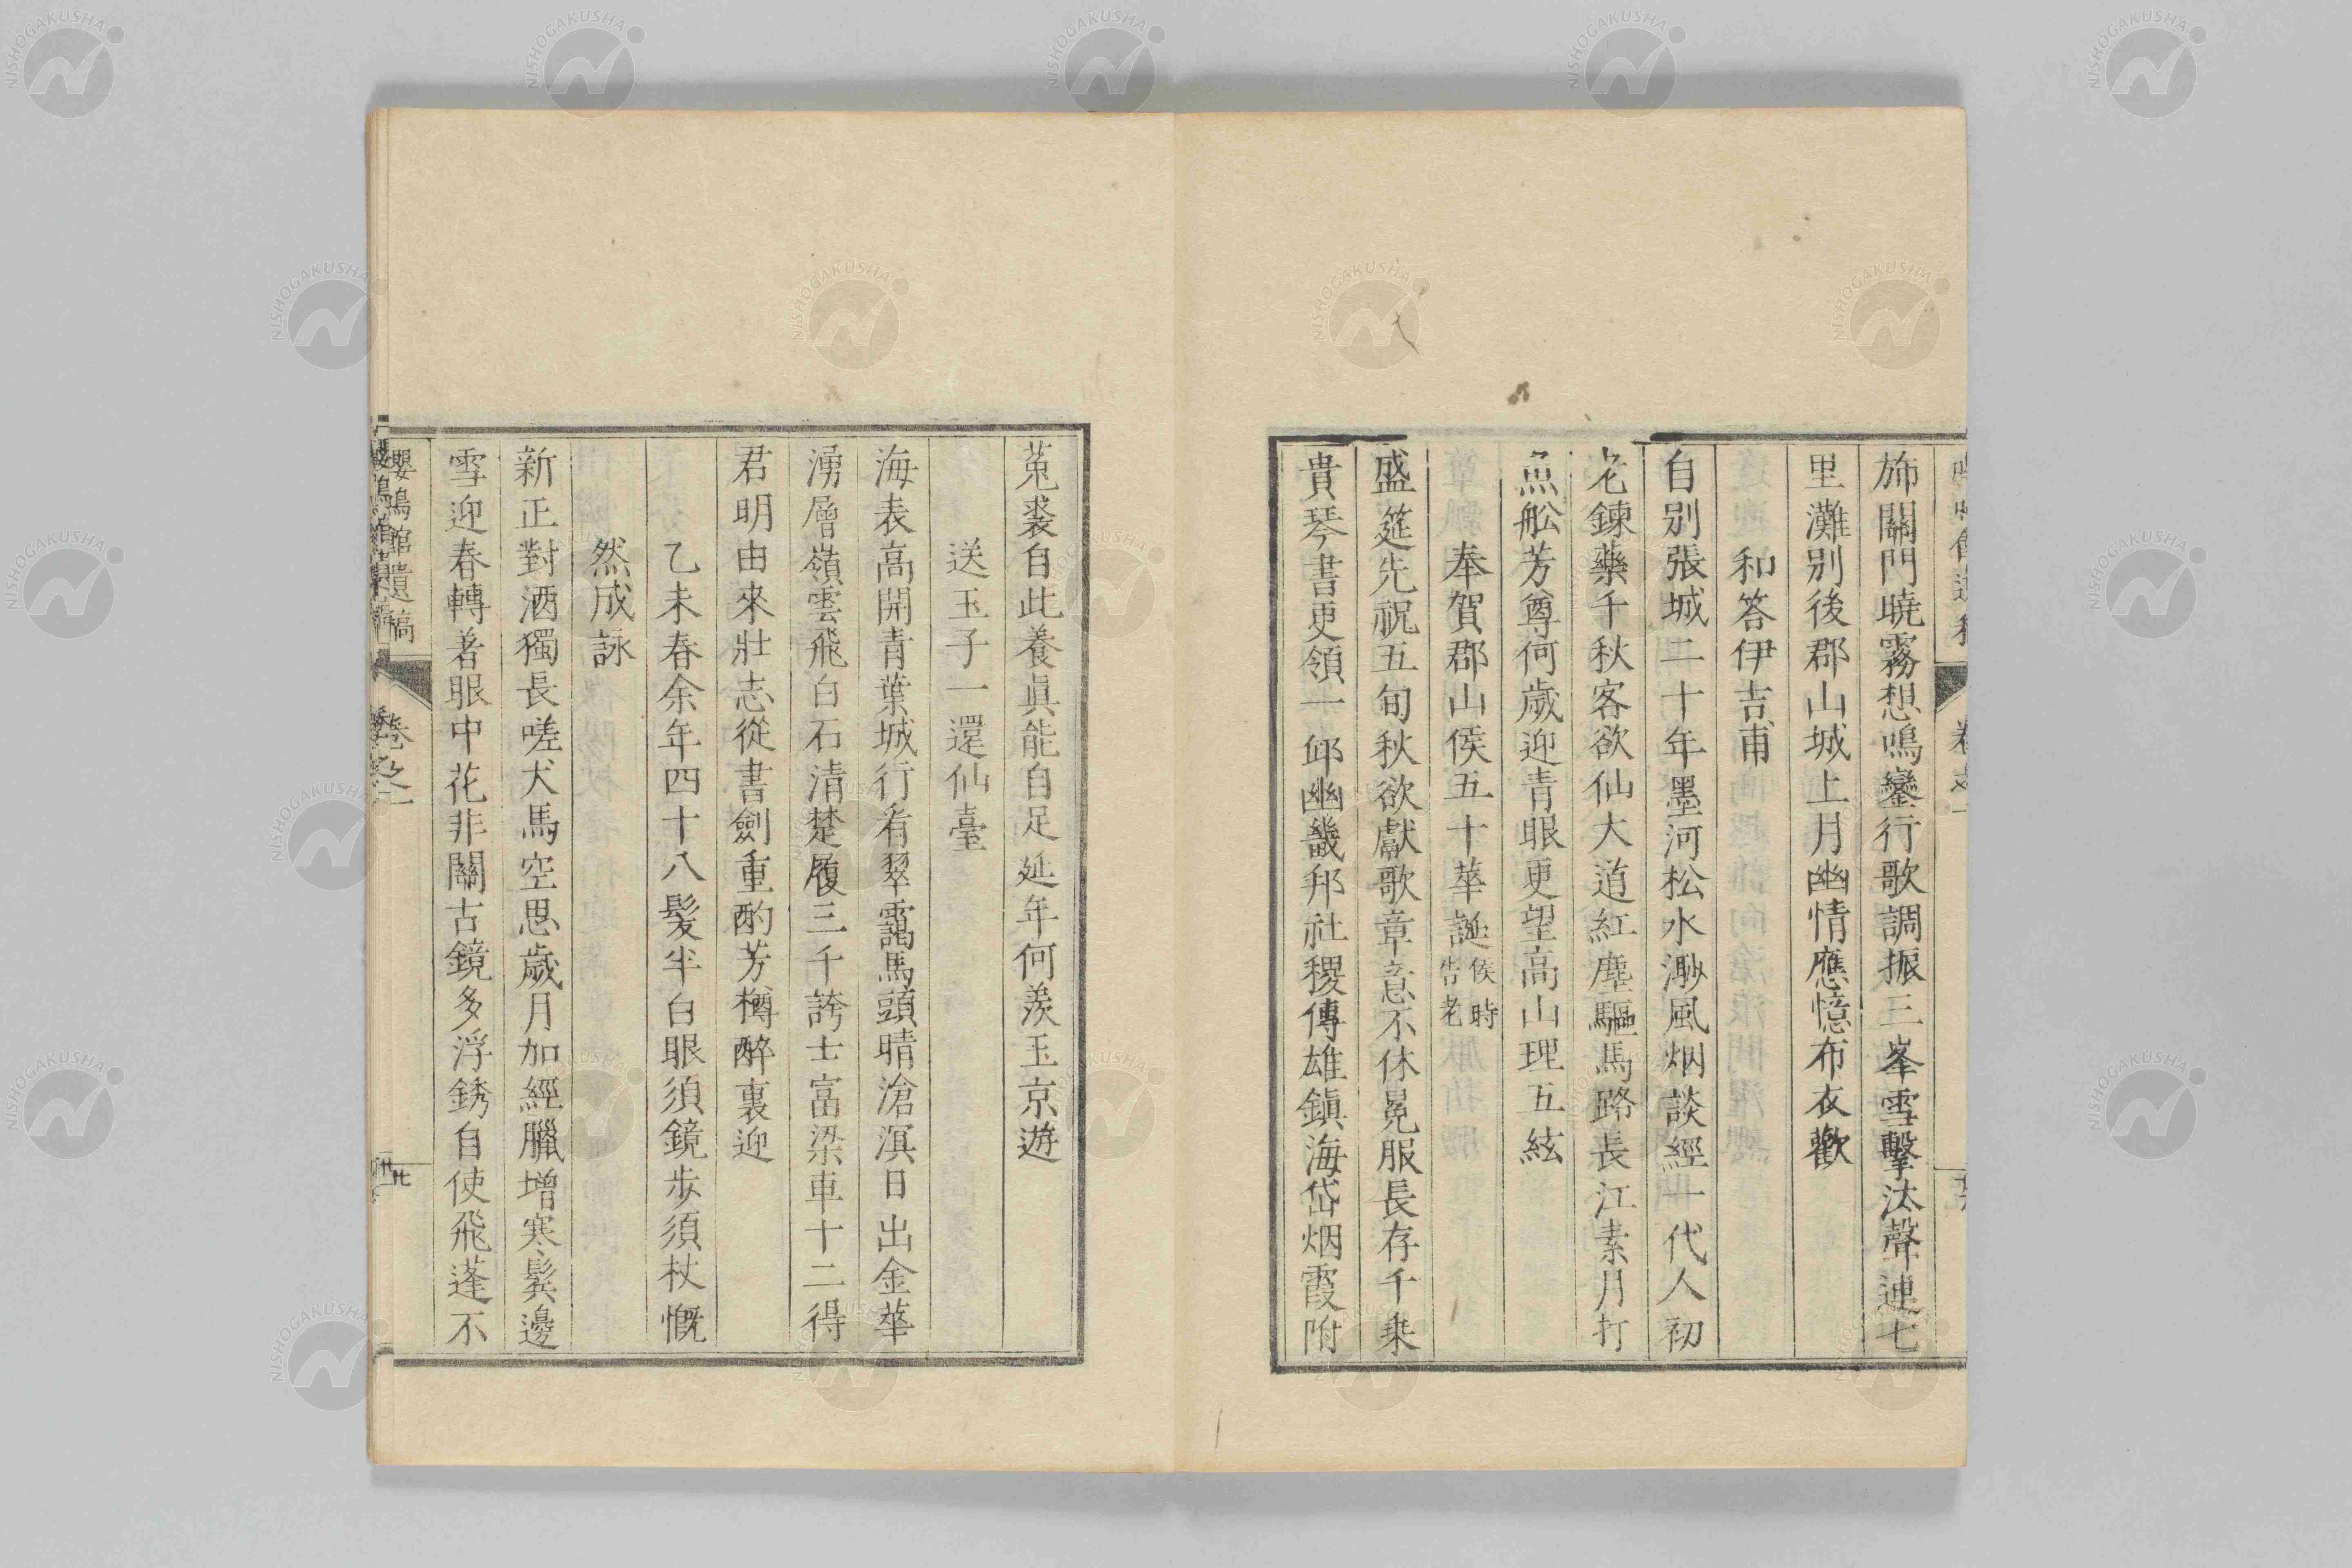 旆關門曉霧想鳴鑾行歌調振三峯雪擊汰聲連七
里灘別後郡山城上月幽情應憶布衣歡
和答伊吉甫
自別張城二十年墨河松水渺風烟談經一代人初
老鍊藥千秋客欲仙大道紅塵驅馬路長江素月打
魚舩芳尊何歲迎青眼更望高山理五絃
奉賀郡山侯五十華誕侯時告老
盛筵先祝五旬秋欲獻歌章意不休冕服長存千乗
貴琴書更領一邱幽畿邦社稷傳雄鎭海岱烟霞附
菟裘自此養眞能自足延年何羨玉京遊
送玉子一還仙臺
海表高開青葉城行看翠靄馬頭晴滄溟日出金華
湧層嶺雲飛白石清楚履三千誇士富梁車十二得
君明由來壯志從書劍重酌芳樽醉裏迎
乙未春余年四十八髮半白眼須鏡步須杖慨
然成詠
新正對酒獨長嗟犬馬空思歲月加經臘增寒鬓邊
雪迎春轉著眼中花非關古鏡多浮銹自使飛蓬不
嚶鳴館遺稿
卷之一
NISHOGAKUSHA